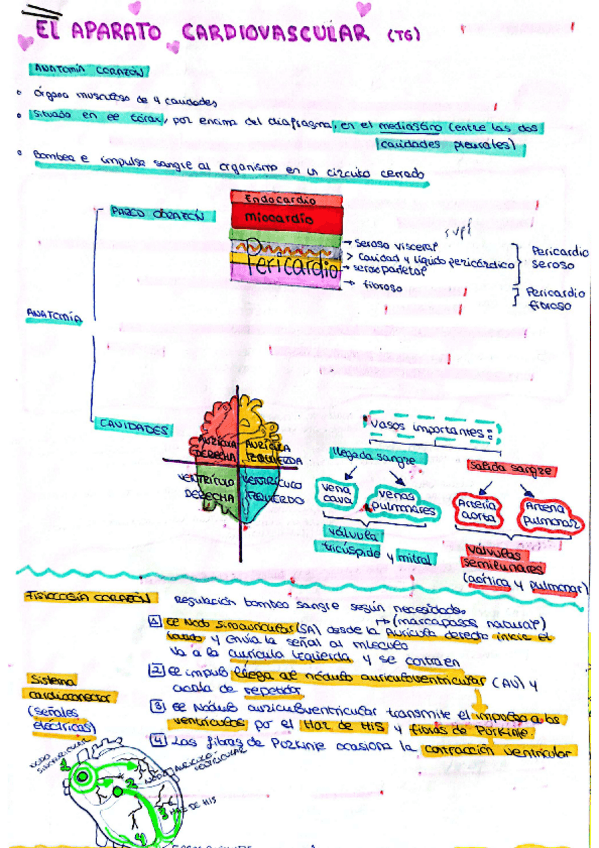 EL APARATO CARDIOVASCULAR (T6)
ANATOMÍA CORAZÓN
Órgano musculoso de 4 cavidades
Situado en el tórax, por encima del diafragma, en el mediastino (entre las dos
cavidades pleurales)
Bombea e impulsa sangre al organismo en un circuito cerrado
PARED CORAZÓN
Endocardio
miocardio
Pericardio
seroso visceral
cavidad y líquido pericárdico
seroso parietal
fibroso
Pericardio
seroso
Pericardio
fibroso
ANATOMÍA
CAVIDADES
AURÍCULA
DERECHA
AURÍCULA
IZQUIERDA
VENTRÍCULO
DERECHA
VENTRÍCULO
IZQUIERDO
Vasos importantes:
llegada sangre
salida sangre
vena
cava
venas
pulmonares
Arteria
aorta
Arteria
Pulmonar
válvula
tricúspide y mitral
Válvulas
semilunares
(aórtica y pulmonar)
FISIOLOGÍA CORAZÓN
Regulación bombeo sangre según necesidades
(marcapasos natural)
1 El Nodo Sinoauricular (SA) desde la Aurícula derecha inicia el
latido y envía la señal al músculo
va a la aurícula izquierda y se contraen
2 El impulso llega al nódulo auriculoventricular (AV) y
acaba de repetidor
3 El Nódulo auriculoventricular transmite el impulso a los
ventrículos por el Haz de His y fibras de Purkinje.
4 Las fibras de Purkinje ocasiona la contracción ventricular
Sistema
cardioconector
(señales
eléctricas)
NODO
SINOAURICULAR
NODO AURICULO-
VENTRICULAR
HAZ DE HIS